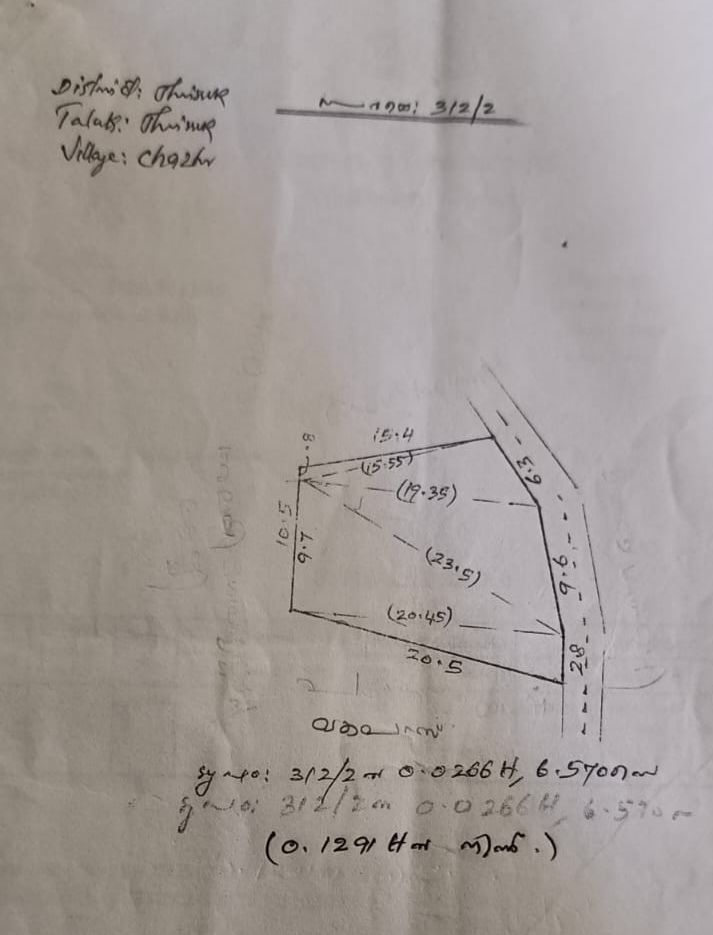 District: Thrissur
Taluk: Thrissur
Village: Chazhr
312/2
.8
15.4
(15.55)
6.3
(19.35)
10.5
9.7
(23.5)
9.6
(20.45)
20.5
2.8
312/2 ൽ 0.0266 H, 6.570
312/2 ൽ 0.0266 H, 6.570
(0.1291 H ൽ നിന്ന്.)